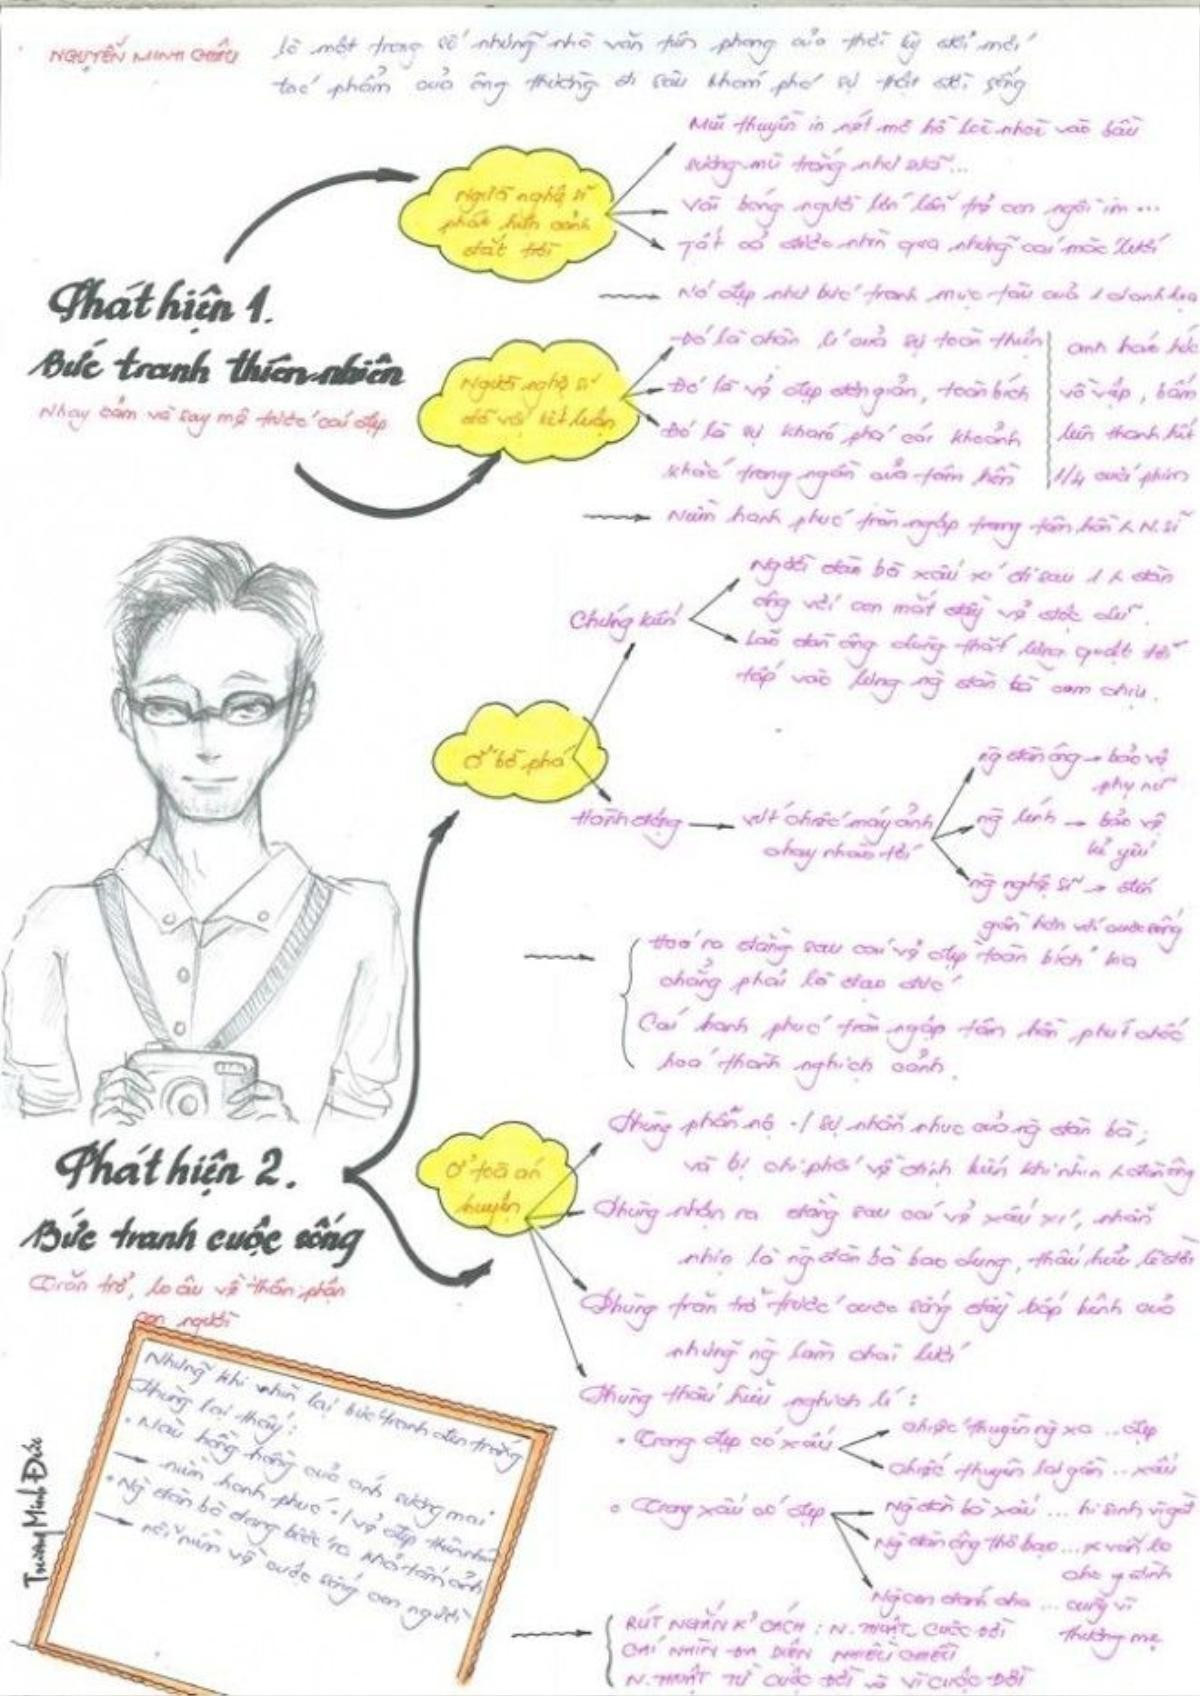 NGUYỄN MINH CHÂU
là một trong số những nhà văn tiên phong của thời kỳ đổi mới
tác phẩm của ông thường đi sâu khám phá sự thật đời sống
Người nghệ sĩ
phát hiện cảnh
đất trời
Mũi thuyền in nét mơ hồ loè nhoè vào bầu
sương mù trắng như sữa...
Vài bóng người lớn lẫn trẻ con ngồi im...
Tất cả được nhìn qua những cái mắc lưới
Nó đẹp như bức tranh mực tàu của 1 danh hoạ
Phát hiện 1.
Bức tranh thiên nhiên
Nhạy cảm và say mê trước cái đẹp
Người nghệ sĩ
đã vội kết luận
Đó là chân lí của sự toàn thiện
Đó là vẻ đẹp đơn giản, toàn bích
Đó là sự khám phá cái khoảnh
khắc trong ngần của tâm hồn
anh háo hức
vồ vập, bấm
liên thanh hết
1/4 cuối phim
Niềm hạnh phúc tràn ngập trong tâm hồn N.sĩ
Ở bờ phá
Chứng kiến
Người đàn bà xấu xí đi sau 1 đàn
ông với con mắt đầy vẻ độc dữ.
Lão đàn ông dùng thắt lưng quật tới
tấp vào lưng ng đàn bà cam chịu.
Hành động
vứt chiếc máy ảnh
chạy nhào tới
ng đàn ông → bảo vệ
phụ nữ
ng lính → bảo vệ
kẻ yếu
ng nghệ sĩ → đến
gần hơn với cuộc sống
Hoá ra đằng sau cái vẻ đẹp toàn bích kia
chẳng phải là đạo đức
Cái hạnh phúc tràn ngập tâm hồn phút chốc
hoá thành nghịch cảnh.
Phát hiện 2.
Bức tranh cuộc sống
Trăn trở, lo âu về thân phận
con người
Ở toà án
huyện
Phùng phẫn nộ ·/ sự nhẫn nhục của ng đàn bà;
và bị chi phối về định kiến khi nhìn đàn ông
Phùng nhận ra đằng sau cái vẻ xấu xí, nhẫn
nhịn là ng đàn bà bao dung, thấu hiểu lẽ đời
Phùng trăn trở trước cuộc sống đầy bấp bênh của
những ng làm chài lưới
Phùng thấu hiểu nghịch lí:
• Trong đẹp có xấu
chiếc thuyền ng xa... đẹp
chiếc thuyền lại gần... xấu
• Trong xấu có đẹp
Ng đàn bà xấu... hi sinh vì gđ
Ng đàn ông thô bạo... x vẫn lo
cho gia đình
Ng con đánh cha... cũng vì
thương mẹ
Nhưng khi nhìn lại bức tranh đen trắng
Phùng lại thấy:
• Màu hồng hồng của ánh sương mai
→ niềm hạnh phúc ·/ vẻ đẹp thiên nhiên
• Ng đàn bà đang bước ra khỏi tấm ảnh
→ nỗi niềm về cuộc sống con người
Trương Minh Đức
RÚT NGẮN K' CÁCH: N.THUẬT CUỘC ĐỜI
CÁI NHÌN ĐA DIỆN NHIỀU CHIỀU
N.THUẬT TỪ CUỘC ĐỜI VÀ VÌ CUỘC ĐỜI